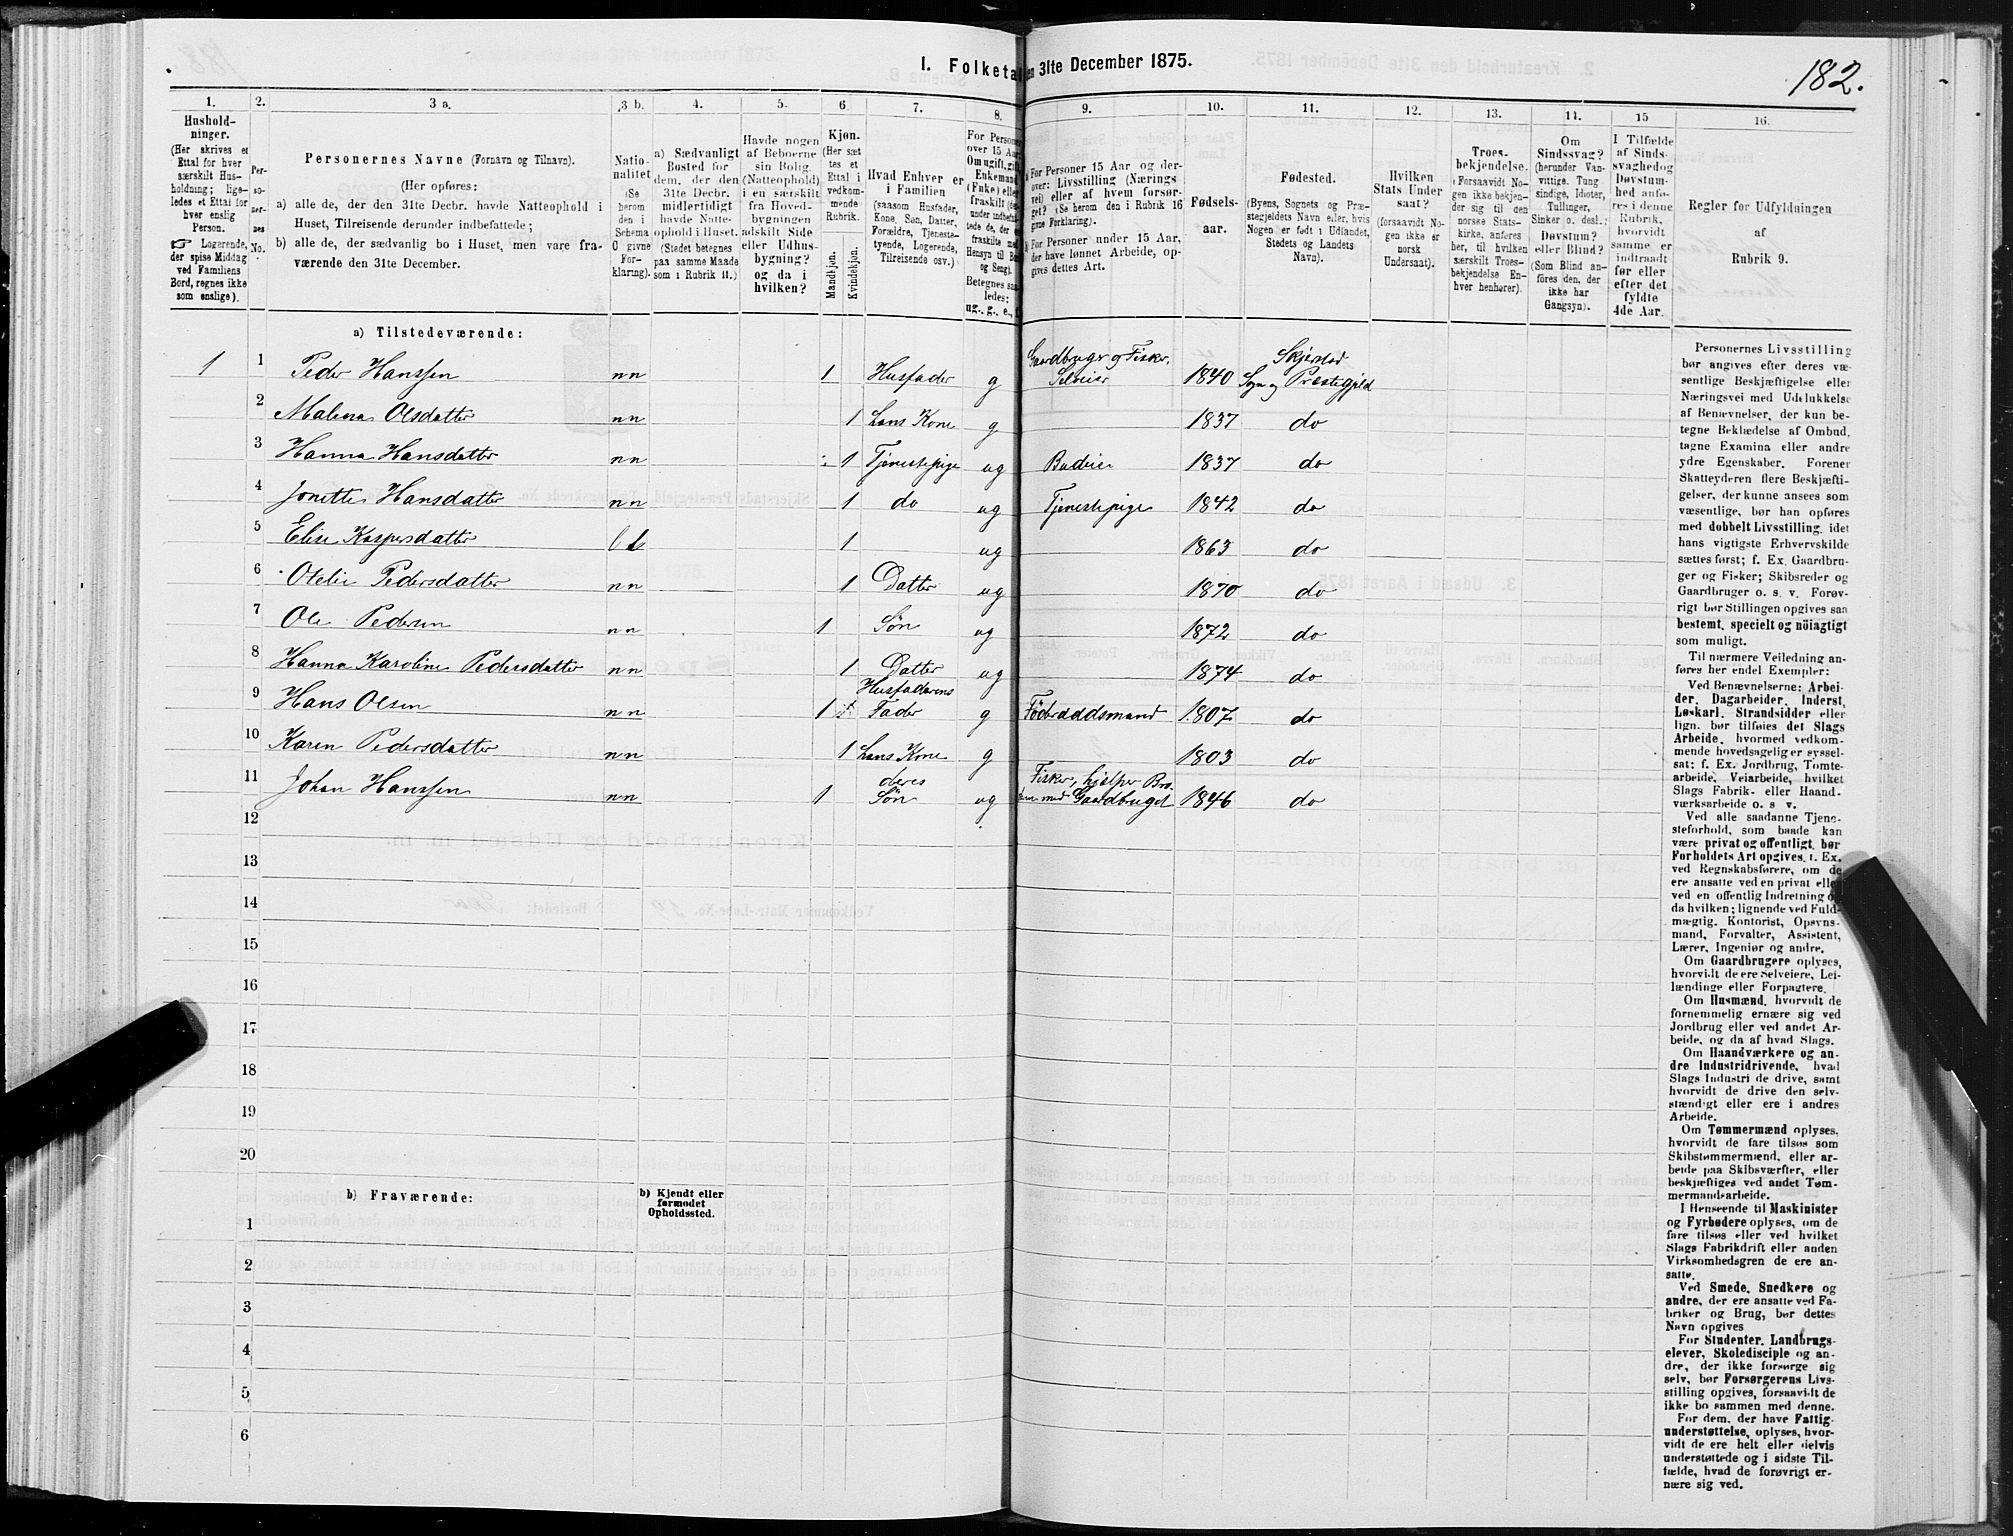 182.
I. Folketal den 31te December 1875.
1.
Hushold-
ninger.
(Her skrives et
Ettal for hver
særskilt Hus-
holdning; lige-
ledes et Ettal for
hver enslig
Person.
☞ Logerende,
der spise Middag
ved Familiens
Bord, regnes ikke
som enslige).
2.
Per-
so-
ner-
nes
No.
3 a.
Personernes Navne (Fornavn og Tilnavn).
(Her opføres:
a) alle de, der den 31te Decbr. havde Natteophold i
Huset, Tilreisende derunder indbefattede;
b) alle de, der sædvanlig bo i Huset, men vare fra-
værende den 31te December.
3 b.
Natio-
nalitet
(Se
herom
den i
Schema
O givne
For-
klaring).
4.
a) Sædvanligt
Bosted for
dem, der den
31te Decbr.
midlertidigt
havde Natte-
ophold i Huset.
(Stedet betegnes
paa samme Maade
som i Rubrik 11.)
5.
Havde nogen
af Beboerne
sin Bolig
(Natteophold)
i en særskilt
fra Hoved-
bygningen
adskilt Side
eller Udhus-
bygning?
og da i
hvilken?
6.
Kjøn.
(Her sæt
tes et
Ettal i
vedkom-
mende
Rubrik.
Mandkjøn.
Kvindekjøn.
7.
Hvad Enhver er
i Familien
(saasom Husfader,
Kone, Søn, Datter,
Forældre, Tjeneste-
tyende, Logerende,
Tilreisende osv.)
8.
For Personer
over 15 Aar:
Om ugift, gift,
Enkemand
(Enke) eller
fraskilt
Betegnes saa-
ledes:
ug., g., e., f.
9.
For Personer 15 Aar og der-
over: Livsstilling (Nærings
vei) eller af hvem forsør-
get? (Se herom den i Rubrik 16
givne Forklaring).
For Personer under 15 Aar,
der have lønnet Arbeide, op-
gives dettes Art.
10.
Fødsels-
aar.
11.
Fødested.
(Byens, Sognets og Præ-
stegjeldets Navn eller, hvis
Nogen er født i Udlandet,
Stedets og Landets
Navn).
12.
Hvilken
Stats Under
saat?
(forsaavidt No-
gen ikke er
norsk
Undersaat).
13.
Troes-
bekjendelse.
(Forsaavidt No-
gen ikke bekjen-
der sig til den
norske Stats-
kirke, anføres
her, til hvilken
særskilt Troes-
bekjendelse En-
hver henhører).
14.
Om
Sindssvag?
(herunder Van-
vittige, Tung
sindige, Idioter,
Tullinger,
Sinker o. desl.)
Døvstum?
eller Blind?
(Som Blind an-
føres den, der
ikke har
Gangsyn).
15
I Tilfælde
af Sinds-
svaghed og
Døvstum-
hed anfø-
res i denne
Rubrik,
hvorvidt
samme er
indtraadt
før eller
efter det
fyldte
4de Aar.
16.
Regler for Udfyldningen
af
Rubrik 9.
a) Tilstedeværende:
1 1 Peder Hanssen nn 1 Husfader g Gaardbruger og Fisker, Selveier 1840 Skjerstad Sogn og Præstegjeld
2 Malena Olsdatter nn 1 hans Kone g 1837 do
3 Hanna Hansdatter nn 1 Tjenestepige ug Budeie 1837 do
4 Jonette Hansdatter nn 1 do ug Tjenestepige 1842 do
5 Elise Kaspersdatter 1 ug 1863 do
6 Otelie Pedersdatter nn 1 Datter ug 1870 do
7 Ole Pedersen nn 1 Søn ug 1872 do
8 Hanna Karoline Pedersdatter nn 1 Datter ug 1874 do
9 Hans Olsen nn 1 Husfaderens Fader g Föderaadsmand 1807 do
10 Karen Pedersdatter nn 1 hans Kone g 1803 do
11 Johan Hanssen nn 1 deres Søn ug Fisker, hjelper Broderen med Gaardbruget 1846 do
12
13
14
15
16
17
18
19
20
b) Fraværende:
b) Kjendt eller
formodet
Opholdssted.
1
2
3
4
5
6
Personernes Livsstilling
bør angives efter deres væ-
sentlige Beskjæftigelse eller
Næringsvei med Udelukkelse
af Benævnelser, der kun be-
tegne Beklædelse af Ombud,
tagne Examina eller andre
ydre Egenskaber. Forener
Skatteyderen flere Beskjæfti-
gelser, der kunne ansees som
væsentlige, bør han opføres
med dobbelt Livsstilling, idet
hans vigtigste Erhvervskilde
sættes først; f. Ex. Gaardbru-
ger og Fisker; Skibsreder og
Gaardbruger o. s. v. Forøv-
rigt bør Stillingen opgives saa
bestemt, specielt og nöiagtigt
som muligt.
Til nærmere Veiledning an-
føres her endel Exempler:
Ved Benævnelserne: Arbei-
der, Dagarbeider, Inderst,
Løskarl, Strandsidder eller
lign. bør tilføies det Slags
Arbeide, hvormed vedkom-
mende hovedsagelig er syssel-
sat; f. Ex. Jordbrug, Tomte-
arbeide, Veiarbeide, hvilket
Slags Fabrik- eller Haand-
værksarbeide o. s v.
Ved alle saadanne Tjene-
steforhold, som baade kan
være privat og offentligt, bør
Forholdets Art opgives, f. Ex.
ved Regnskabsførere, om de
ere ansatte ved en privat eller
ved en offentlig Indretning og
da hvilken; lignende ved Fuld-
mægtig, Kontorist, Opsyns-
mand, Forvalter, Assistent,
Lærer, Ingeniør og andre.
Om Gaardbrugere oplyses,
hvorvidt de ere Selveiere, Lei-
lændinge eller Forpagtere.
Om Husmænd, hvorvidt de
fornemmelig ernære sig ved
Jordbrug eller ved andet Ar-
beide, og da af hvad Slags.
Om Haandværkere og an-
dre Industridrivende, hvad
Slags Industri de drive, samt
hvorvidt de drive den selv-
stændigt eller ere i andres
Arbeide.
Om Tømmermænd oplyses,
hvorvidt de fare tilsøs som
Skibstømmermænd, eller ar-
beide paa Skibsværfter, eller
beskjæftiges ved andet Tøm-
mermandsarbeide.
I Henseende til Maskinister
og Fyrbødere oplyses, om de
fare tilsøs eller ved hvilket
Slags Fabrikdrift eller anden
Virksomhedsgren de ere an-
satte.
Ved Smede, Snedkere og
andre, der ere ansatte ved Fa-
briker og Brug, bør dettes
Navn opgives
For Studenter, Landbrugs-
elever, Skoledisciple og an-
dre, der ikke forsørge sig
selv, bør Forsørgerens Livs-
stilling opgives, forsaavidt de
ikke bo sammen med denne.
For dem, der have Fattig-
understøttelse, oplyses, hvor-
vidt de ere helt eller delvis
understøttede og i sidste Til-
fælde, hvad de forøvrigt er-
nære sig ved.